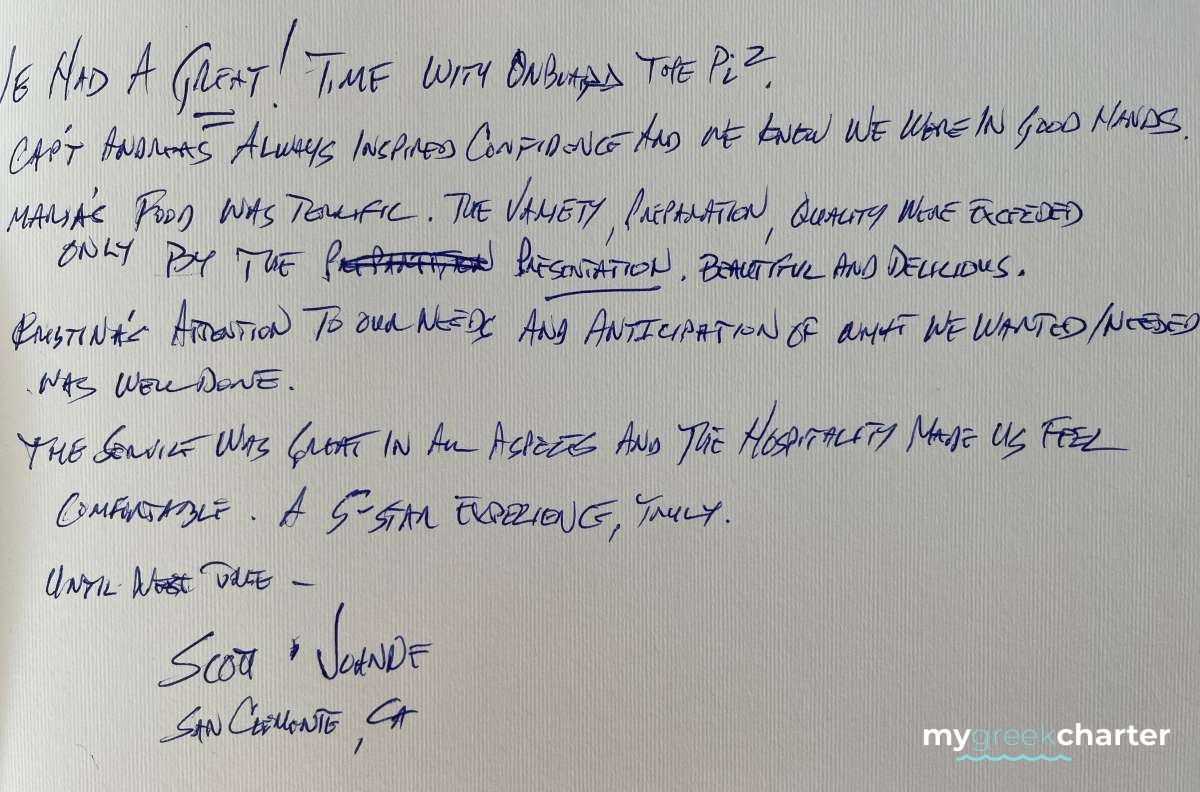 WE HAD A GREAT! TIME WITH ONBOARD THE Pi2.
CAP'T ANDREAS ALWAYS INSPIRED CONFIDENCE AND WE KNEW WE WERE IN GOOD HANDS.
MARIA'S FOOD WAS TERRIFIC. THE VARIETY, PREPARATION, QUALITY WERE EXCEEDED
ONLY BY THE PRESENTATION. BEAUTIFUL AND DELICIOUS.
ATTENTION TO OUR NEEDS AND ANTICIPATION OF WHAT WE WANTED/NEEDED
WAS WELL DONE.
THE SERVICE WAS GREAT IN ALL ASPECTS AND THE HOSPITALITY MADE US FEEL
COMFORTABLE. A 5-STAR EXPERIENCE, TRULY.
UNTIL NEXT TIME –
SCOTT
SAN CLEMENTE, CA
mygreekcharter